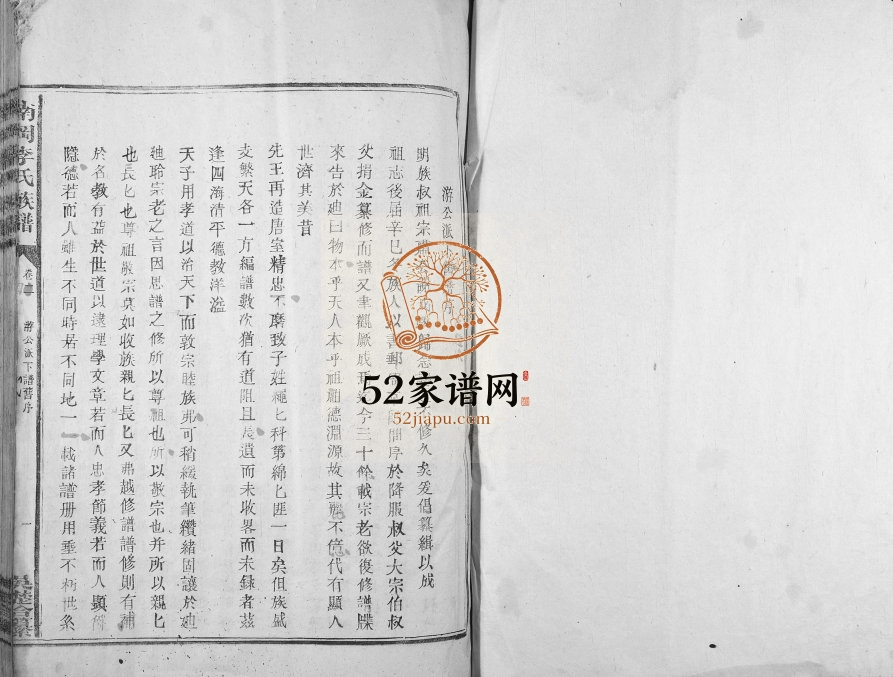 游公派
明族叔祖宗
修久矣爰倡纂緝以成
祖志後屆辛巳
族人以
郵
序於降服叔父大宗伯叔
父捐金纂修而譜又聿觀厥成
今三十餘載宗老欲復修譜牒
來告於迪曰物本乎天人本乎祖祖德淵源故其
不億代有顯人
世濟其美昔
先王再造唐室精忠不磨致子姓繩匕科第綿匕匪一日矣但族盛
支繁天各一方編譜數次猶有道阻且長遺而未收畧而未錄者茲
逢四海清平德教洋溢
天子用孝道以治天下而敦宗睦族弗可稍緩執筆纘緒固讓於迪
迪聆宗老之言因思譜之修所以尊祖也所以敬宗也并所以親匕
也長匕也尊祖敬宗莫如收族親匕長匕又弗越修譜譜修則有補
於名教有益於世道以遠理學文章若而人忠孝節義若而人顯
隱德若而人雖生不同時居不同地一一載諸譜册用垂不朽世系
南岡李氏族譜
卷
游公派下譜舊序
一
吳楚合纂
52家谱网
52jiapu.com